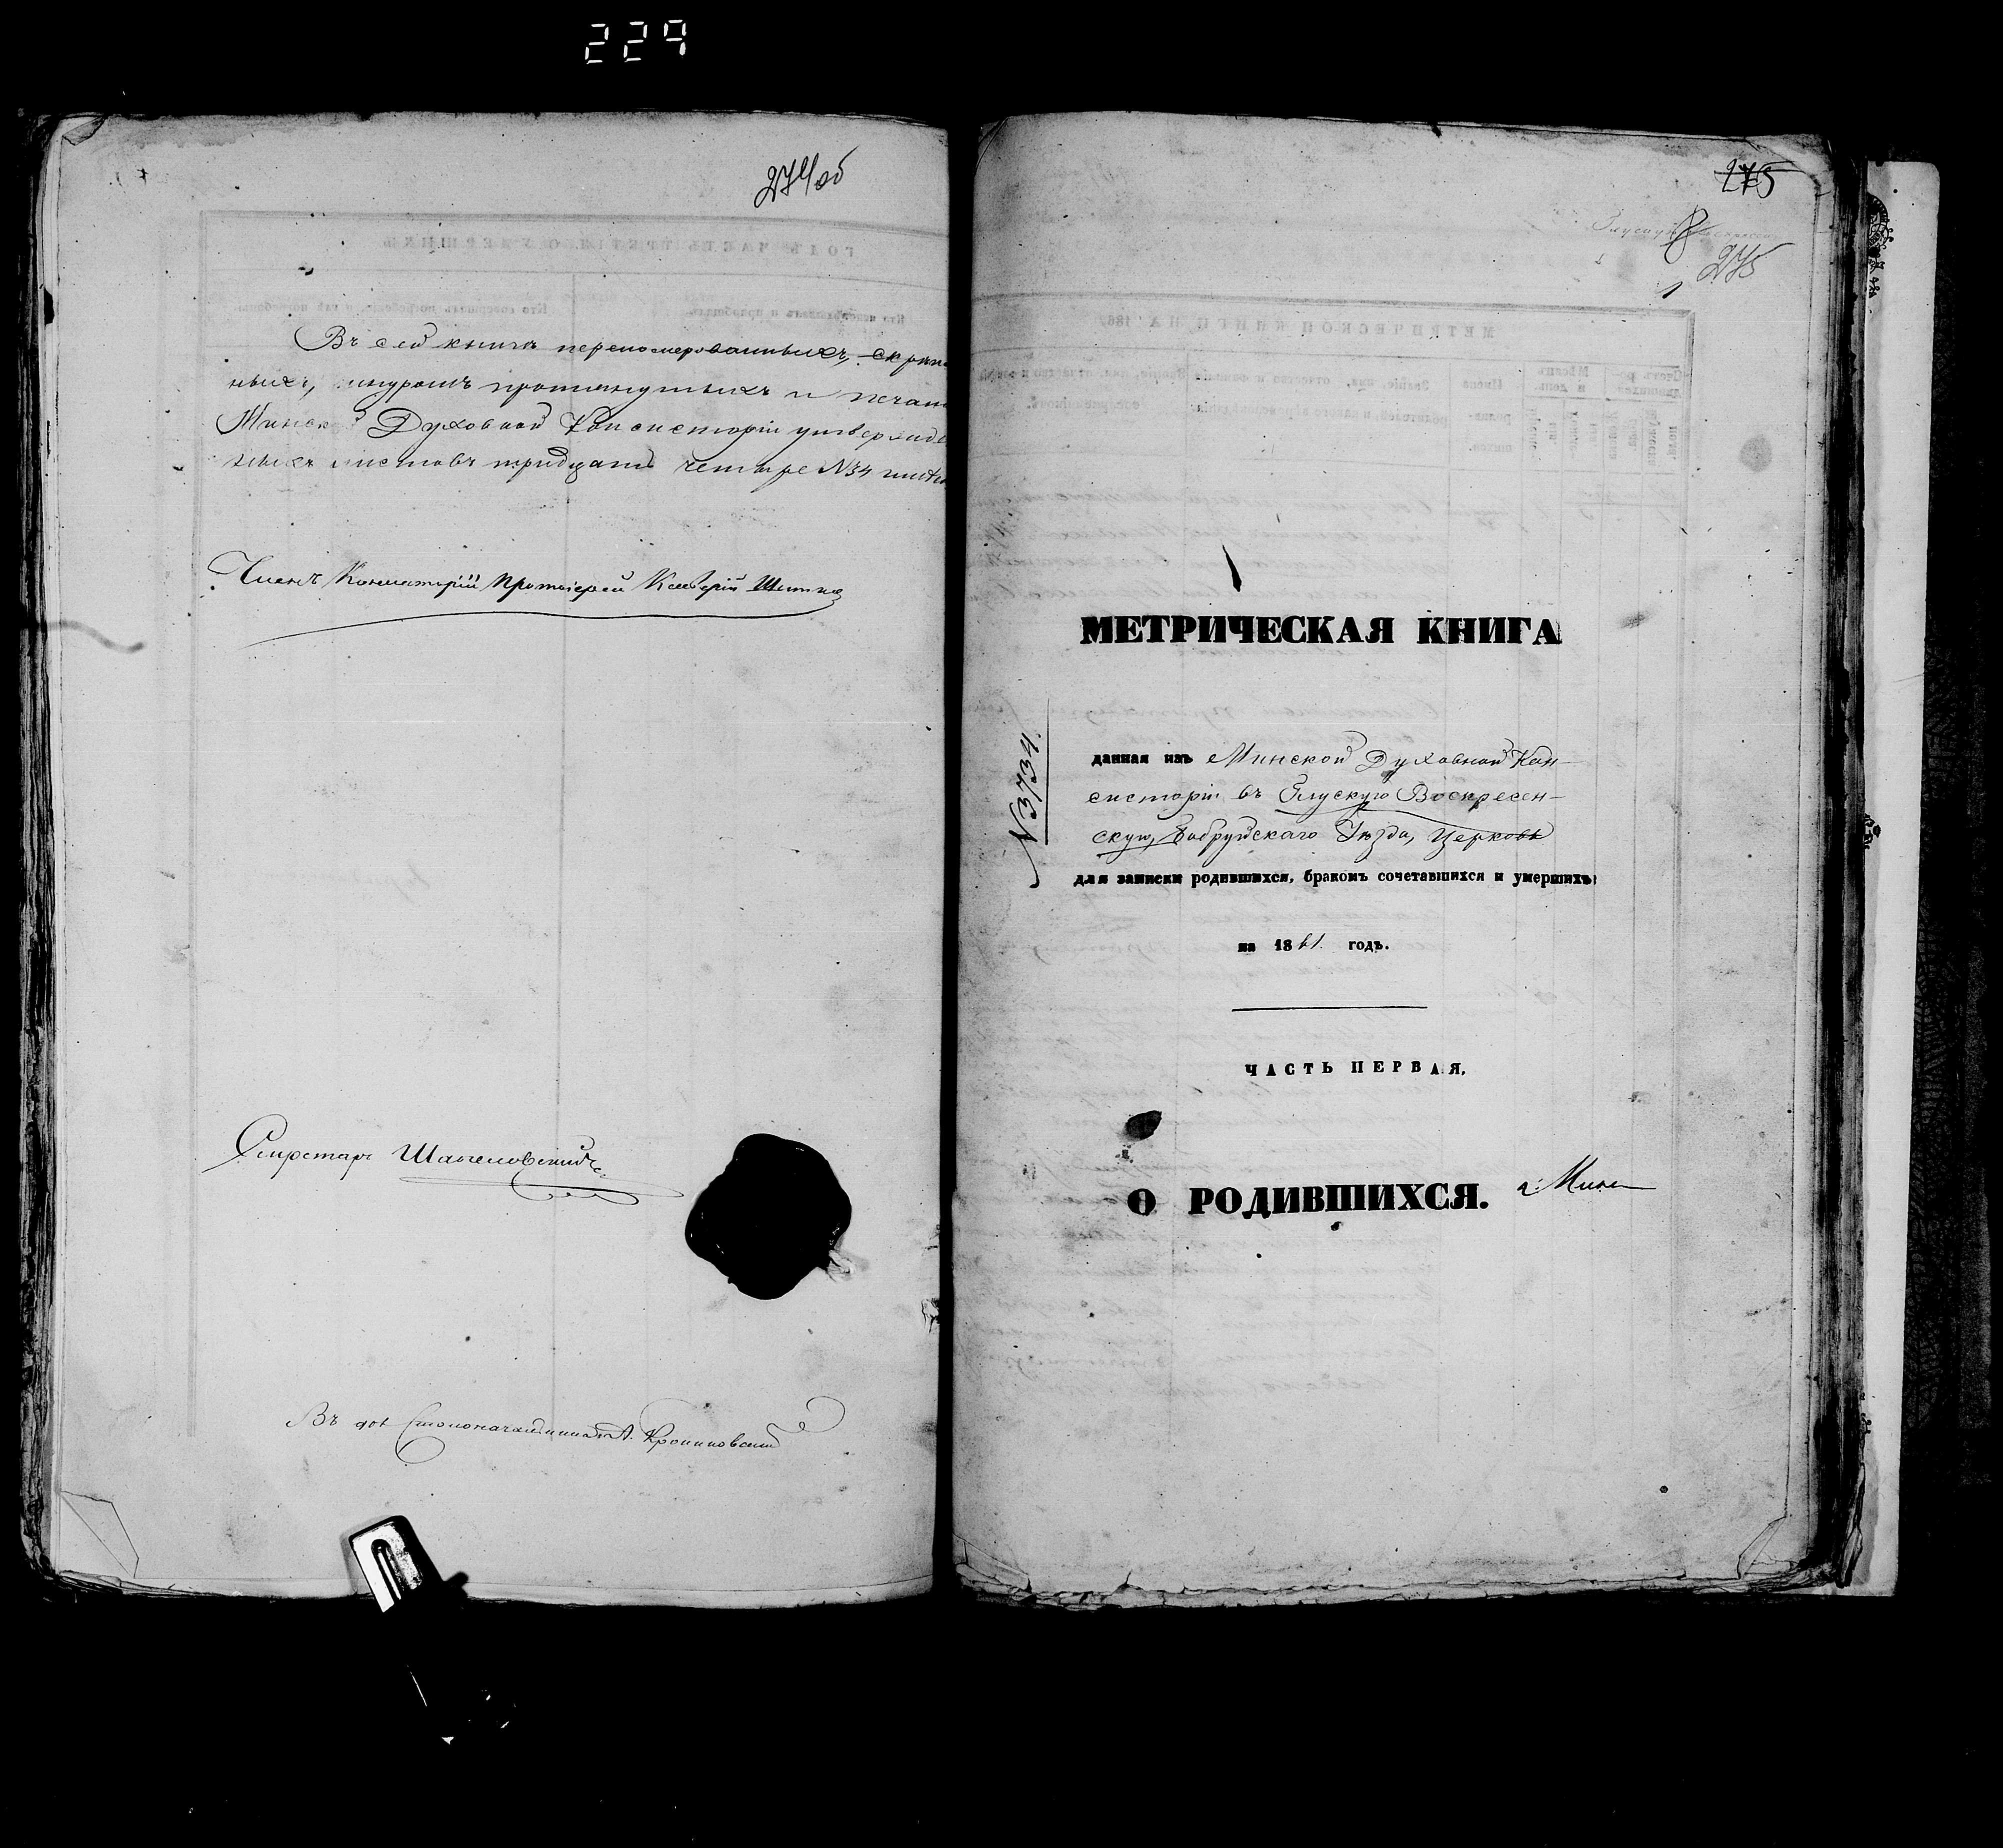 229
274об
Въ сей книгѣ перенумерованныхъ, скрѣплен
ныхъ, шнуромъ протянутыхъ и печатью
Минской Духовной Консисторіи утвержден
ныхъ листовъ тридцать четыре №34 листа
Членъ Консисторіи Протоіерей
Секретарь
Въ дол Столоначальника А.
275
275
1
МЕТРИЧЕСКАЯ КНИГА
№ 3734.
данная изъ Минской Духовной Кон-
систоріи въ Глускую Воскресен-
скую, Бобруйскаго Уѣзда, Церковь
для записки родившихся, бракомъ сочетавшихся и умершихъ
на 1861 годъ.
ЧАСТЬ ПЕРВАЯ.
О РОДИВШИХСЯ.